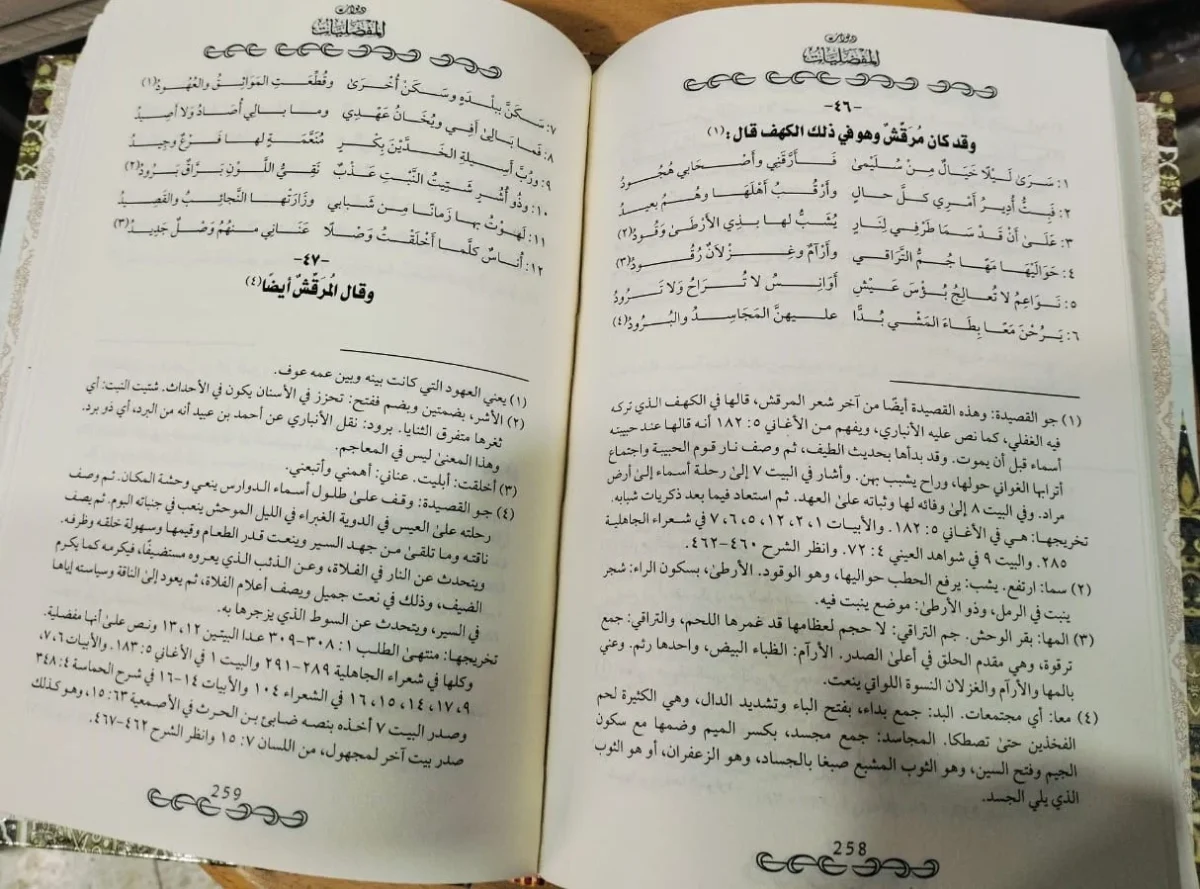 ديوان
المفضليات
-٤٦-
وقد كان مُرَقِّشٌ وهو في ذلك الكهف قال:(١)
١: سَرَىٰ لَيْلًا خَيَالٌ مِنْ سُلَيْمَىٰ فَأَرَّقَنِي وأَصْحَابي هُجُودُ
٢: فَبِتُّ أُدِيرُ أَمْرِي كلَّ حالٍ وأَرْقُبُ أَهْلَهَا وهُمُ بعيدُ
٣: عَلَىٰ أَنْ قَدْ سَمَا طَرْفي لِنَارٍ يُشَبُّ لها بِذِي الأَرْطَىٰ وَقُودُ(٢)
٤: حَوَالَيْهَا مَهًا جُمُّ التَّرَاقي وأَرْآمٌ وغِزْلَانٌ رُقُودُ(٣)
٥: نَوَاعِمُ لا تُعالِجُ بُؤْسَ عَيْشٍ أَوَانِسُ لا تُرَاحُ وَلا تَرُودُ
٦: يَرُحْنَ مَعًا بِطَاءَ المَشْي بُدًّا عليهنَّ المَجَاسِدُ والبُرُودُ(٤)
(١) جو القصيدة: وهذه القصيدة أيضًا من آخر شعر المرقش، قالها في الكهف الذي تركه
فيه الغفلي، كما نص عليه الأنباري، ويفهم من الأغاني ٥: ١٨٢ أنه قالها عند حبيبته
أسماء قبل أن يموت. وقد بدأها بحديث الطيف، ثم وصف نار قوم الحبيبة واجتماع
أترابها الغواني حولها، وراح يشبب بهن. وأشار في البيت ٧ إلىٰ رحلة أسماء إلىٰ أرض
مراد. وفي البيت ٨ إلىٰ وفائه لها وثباته علىٰ العهد. ثم استعاد فيما بعد ذكريات شبابه.
تخريجها: هي في الأغاني ٥: ١٨٢. والأبيات ١، ٢، ١٢، ٥، ٦، ٧ في شعراء الجاهلية
٢٨٥. والبيت ٩ في شواهد العيني ٤: ٧٢. وانظر الشرح ٤٦٠-٤٦٢.
(٢) سما: ارتفع. يشب: يرفع الحطب حواليها، وهو الوقود. الأرطىٰ، بسكون الراء: شجر
ينبت في الرمل، وذو الأرطىٰ: موضع ينبت فيه.
(٣) المها: بقر الوحش. جم التراقي: لا حجم لعظامها قد غمرها اللحم، والتراقي: جمع
ترقوة، وهي مقدم الحلق في أعلىٰ الصدر. الأرآم: الظباء البيض، واحدها رئم. وعني
بالمها والأرآم والغزلان النسوة اللواتي ينعت.
(٤) معا: أي مجتمعات. البد: جمع بداء، بفتح الباء وتشديد الدال، وهي الكثيرة لحم
الفخذين حتىٰ تصطكا. المجاسد: جمع مجسد، بكسر الميم وضمها مع سكون
الجيم وفتح السين، وهو الثوب المشبع صبغا بالجساد، وهو الزعفران، أو هو الثوب
الذي يلي الجسد.
258
ديوان
المفضليات
٧: سَكَنَّ بِبَلْدَةٍ وسَكَنْتُ أُخْرَىٰ وقُطِّعَتِ المَوَاثِقُ والعُهُودُ(١)
٨: فَمَا بَالىٰ أَفِي ويُخَانُ عَهْدِي وما بالي أُصَادُ وَلَا أَصِيدُ
٩: ورُبَّ أَسِيلةِ الخَدَّيْنِ بِكْرٍ مُنَعَّمَةٍ لها فَرْعٌ وجِيدُ
١٠: وذُو أُشُرٍ شَتِيتُ النَّبْتِ عَذْبٌ نَقِيُّ اللَّوْنِ بَرَّاقٌ بَرُودُ(٢)
١١: لَهَوْتُ بها زَمانًا مِن شَبابي وزَارَتْها النَّجائِبُ والقَصِيدُ
١٢: أُناسٌ كلَّما أَخْلَقْتُ وَصْلًا عَنَاني منهُمُ وَصْلٌ جَدِيدُ(٣)
-٤٧-
وقال المُرَقِّشُ أيضًا(٤)
(١) يعني العهود التي كانت بينه وبين عمه عوف.
(٢) الأشر، بضمتين وبضم ففتح: تحزز في الأسنان يكون في الأحداث. شتيت النبت: أي
ثغرها متفرق الثنايا. برود: نقل الأنباري عن أحمد بن عبيد أنه من البرد، أي ذو برد.
وهذا المعنىٰ ليس في المعاجم.
(٣) أخلقت: أبليت. عناني: أهمني وأتبعني.
(٤) جو القصيدة: وقف علىٰ طلول أسماء الدوارس ينعي وحشة المكان. ثم وصف
رحلته علىٰ العيس في الدوية الغبراء في الليل الموحش ينعب في جنباته البوم. ثم يصف
ناقته وما تلقىٰ من جهد السير وينعت قدر الطعام وقيمها وسهولة خلقه وظرفه.
ويتحدث عن النار في الفلاة، وعن الذئب الذي يعروه مستضيفًا، فيكرمه كما يكرم
الضيف، وذلك في نعت جميل ويصف أعلام الفلاة، ثم يعود إلىٰ الناقة وسياسته إياها
في السير، ويتحدث عن السوط الذي يزجرها به.
تخريجها: منتهىٰ الطلب ١: ٣٠٨-٣٠٩ عدا البيتين ١٢، ١٣ ونص علىٰ أنها مفضلية.
وكلها في شعراء الجاهلية ٢٨٩-٢٩١ والبيت ١ في الأغاني ٥: ١٨٣. والأبيات ٦، ٧،
٩، ١٧، ١٤، ١٥، ١٦ في الشعراء ١٠٤ والأبيات ١٤-١٦ في شرح الحماسة ٤: ٣٤٨
وصدر البيت ٧ أخذه بنصه ضابئ بن الحرث في الأصمعية ٦٣: ١٥، وهو كذلك
صدر بيت آخر لمجهول، من اللسان ٧: ١٥ وانظر الشرح ٤٦٢-٤٦٧.
259